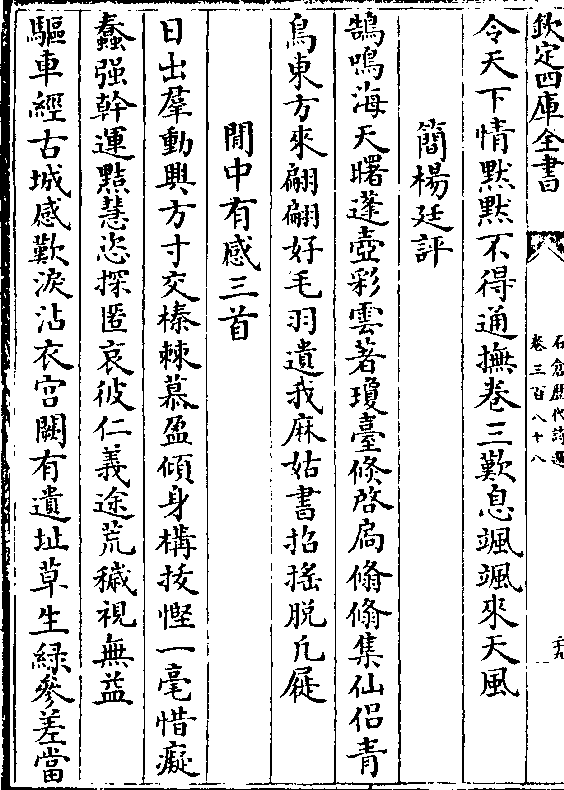 欽定四庫全書
石倉歷代詩選
卷三百八十八
令天下情黙黙不得通撫卷三歎息颯颯來天風
簡楊廷評
鵠鳴海天曙蓬壺彩雲著瓊臺倐啓扄翛翛集仙侣青
鳥東方來翩翩好毛羽遺我麻姑書招摇脱凡屣
閒中有感三首
日出羣動興方寸交榛棘慕盈傾身構抜慳一毫惜癡
蠢强幹運黠慧恣探匿哀彼仁義途荒穢視無益
驅車經古城感歎淚沾衣宫闕有遺址草生緑參差當